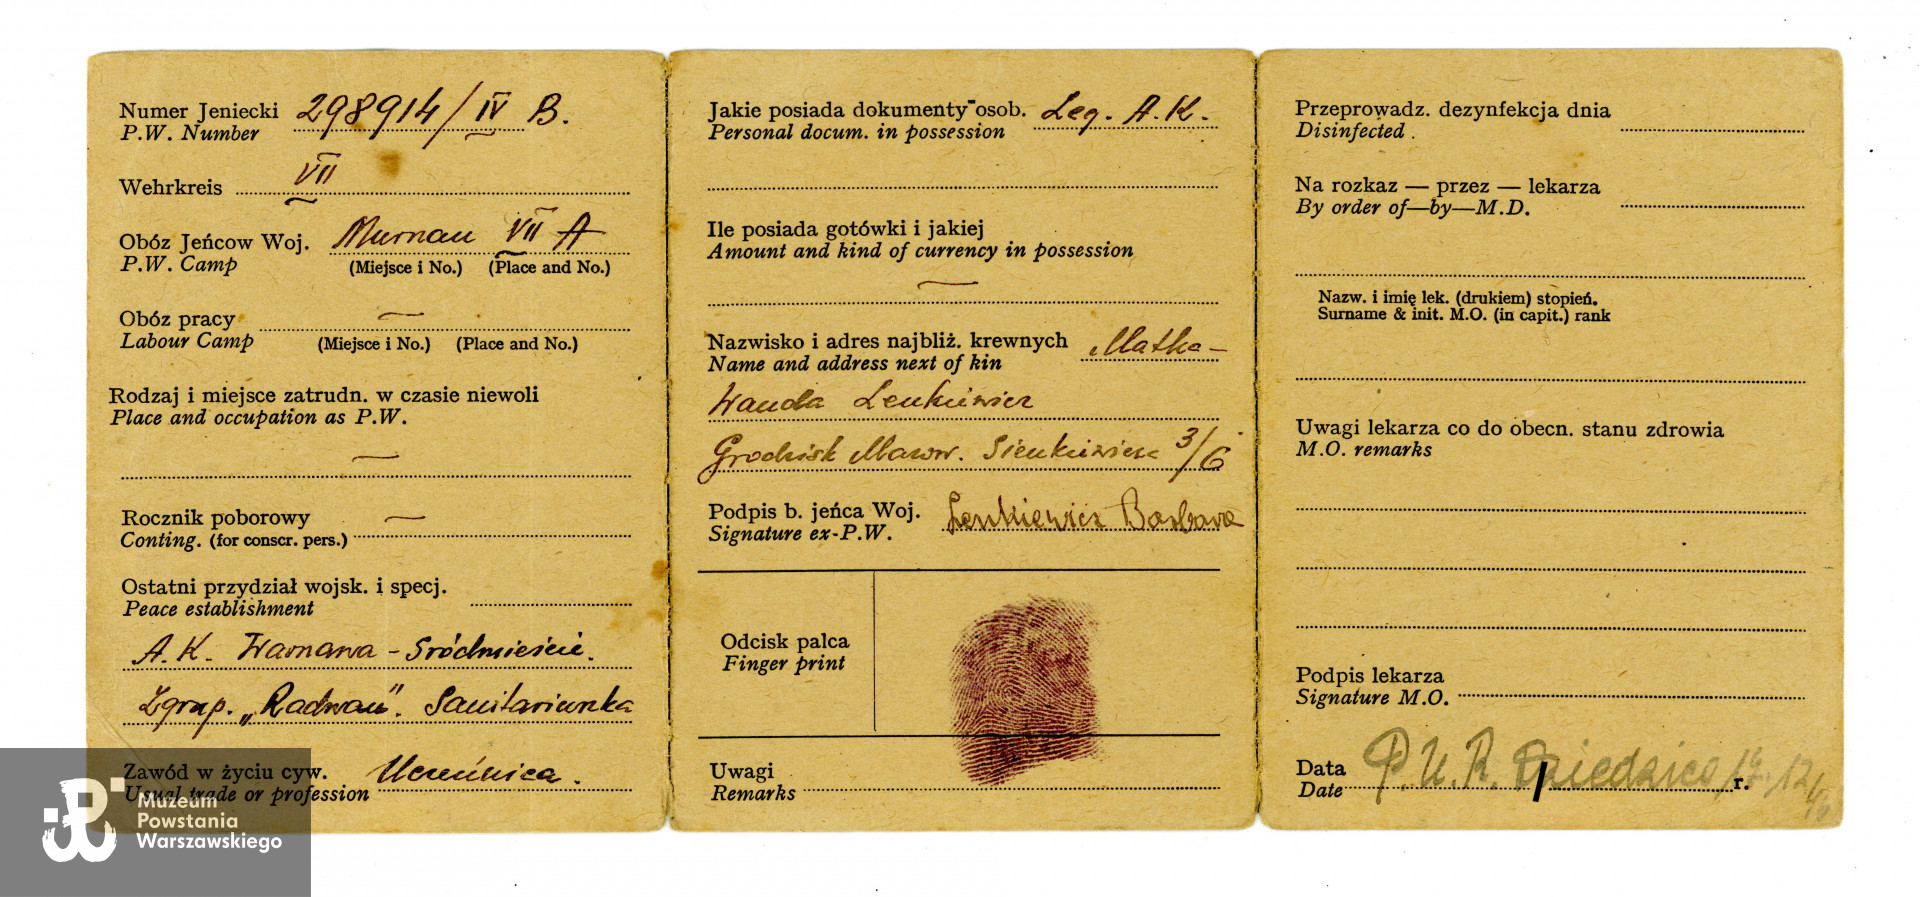 Numer Jeniecki 298914/IV B.
P.W. Number
Wehrkreis VII
Obóz Jeńcow Woj. Murnau VII A
P.W. Camp (Miejsce i No.) (Place and No.)
Obóz pracy —
Labour Camp (Miejsce i No.) (Place and No.)
Rodzaj i miejsce zatrudn. w czasie niewoli
Place and occupation as P.W.
—
Rocznik poborowy —
Conting. (for conscr. pers.)
Ostatni przydział wojsk. i specj.
Peace establishment
A.K. Warszawa - Śródmieście.
Zgrup. „Radwan". Sanitariuszka
Zawód w życiu cyw. Uczennica.
Usual trade or profession
Jakie posiada dokumenty osob. Leg. A.K.
Personal docum. in possession
Ile posiada gotówki i jakiej
Amount and kind of currency in possession
—
Nazwisko i adres najbliż. krewnych Matka -
Name and address next of kin
Wanda Lenkiewicz
Grodzisk Mazow. Sienkiewicza 3/6
Podpis b. jeńca Woj. Lenkiewicz Barbara
Signature ex-P.W.
Odcisk palca
Finger print
Uwagi
Remarks
Przeprowadz. dezynfekcja dnia
Disinfected.
Na rozkaz — przez — lekarza
By order of—by—M.D.
Nazw. i imię lek. (drukiem) stopień.
Surname & init. M.O. (in capit.) rank
Uwagi lekarza co do obecn. stanu zdrowia
M.O. remarks
Podpis lekarza
Signature M.O.
Data P.U.R. Dziedzice r.
Date
Muzeum
Powstania
Warszawskiego